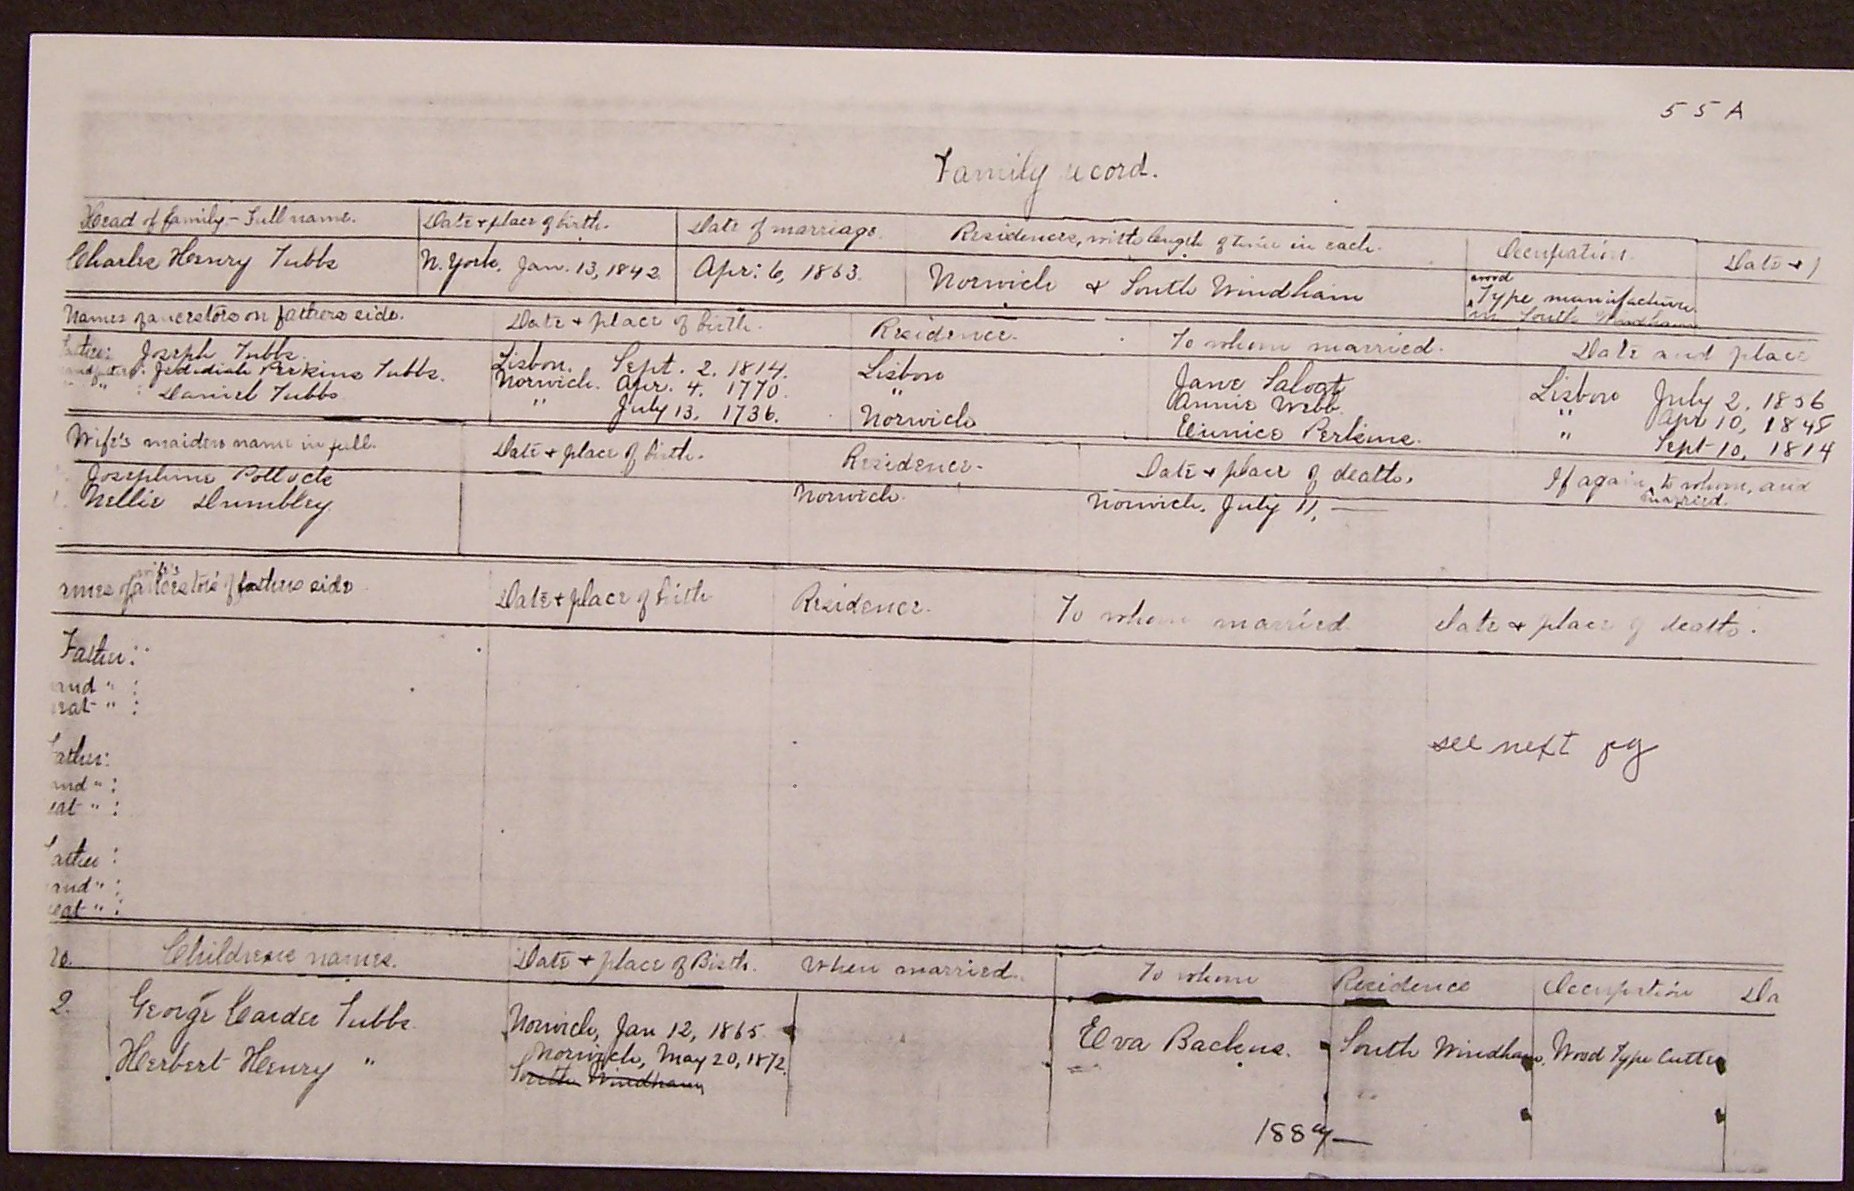 55A
Family record.
Head of family - Full name. Date + place of birth. Date of marriage. Residences, with length of time in each. Occupation. Date +
Charles Henry Tubbs N. York, Jan. 13, 1842 Apr: 6, 1863. Norwich & South Windham wood
Type manufacturer
in South Windham
Names of ancestors on fathers side. Date + place of birth. Residence. To whom married. Date and place
Father: Joseph Tubbs. Lisbon. Sept. 2. 1814. Lisbon Jane Lisbon July 2. 1856
Jedediah Perkins Tubbs. Norwich. Apr. 4. 1770. " Annie Webb. " Apr 10, 1848
" " Daniel Tubbs " July 13, 1736. Norwich Eunice Perkins. " Sept 10, 1814
Wife's maiden name in full. Date + place of birth. Residence. Date + place of death. If again, to whom, and
married.
Josephine Pollock
Nellie Dumbley Norwich. Norwich, July 11, —
wife's
ames of ancestors of fathers side Date + place of birth Residence. To whom married Date + place of death.
Father:
and " :
eat " :
see next pg
ather:
and " :
eat " :
ather :
and " :
eat " :
No. Childrens names. Date + place of Birth. When married. To whom Residence Occupation Da
2. George Carder Tubbs. Norwich, Jan 12, 1865. Elva Backus. South Windham, Wood Type Cutter
Herbert Henry " Norwich, May 20, 1872.
South Windham
188